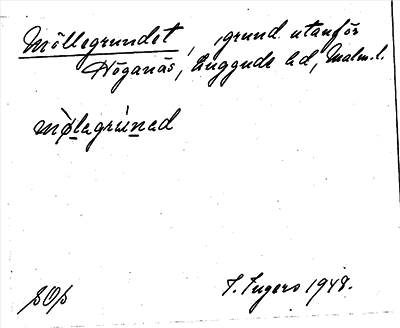 Möllegrundet, grund utanför
Höganäs, Luggude hd, Malm. l.
mø̀legrúnəd
sOp
I. Ingers 1948.